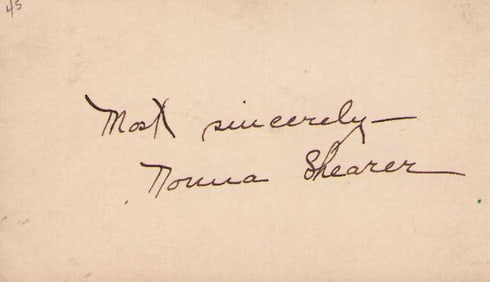 45
Most sincerely—
Norma Shearer